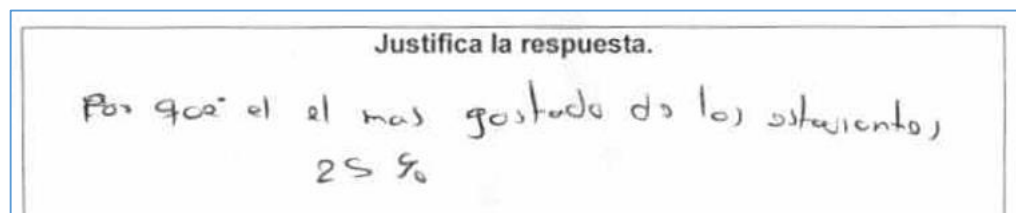 Justifica la respuesta.
Por que el el mas gostado de los
25 %